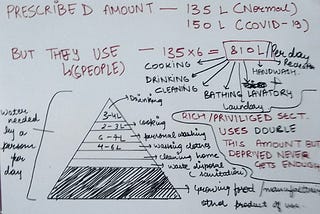 PRESCRIBED AMOUNT — 135 L (Normal)
150 L (COVID-19)
BUT THEY USE — 135 X 6 = 810L Per day
(6 PEOPLE)
COOKING
DRINKING
CLEANING
BATHING
LAVATORY
HANDWASH
Laundry
RICH/PRIVILIGED SECT.
USES DOUBLE
THIS AMOUNT BUT
DEPRIVED NEVER
GETS ENOUGH
Water needed by a person for day
Drinking
3-4L cooking
2-3L personal washing
6-7L washing clothes
4-6L cleaning home
waste disposal
(sanitation)
growing food / manufacture
other product of use